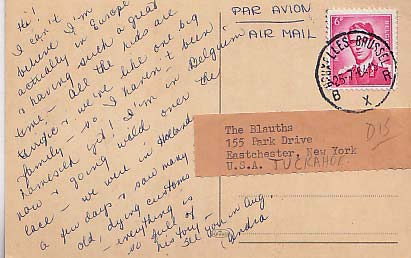 Hi!
I can't
believe I'm
actually in Europe
& having such a great
time - All the kids are
terrific & we're like one big
family - so I haven't been
homesick yet! I'm in Belgium
now & going wild over the
lace - we were in Holland
a few days & saw many
old, dying customs
- everything is
so full of
history -
See you in Aug.
PAR AVION
AIR MAIL
6F
BRUXELLES BRUSSEL
B X B
The Blauths
155 Park Drive
Eastchester, New York
U.S.A. TUCKAHOE